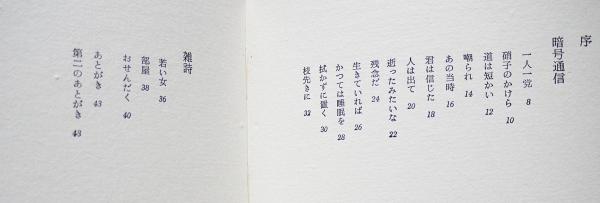 序
暗号通信
一人一党 8
硝子のかけら 10
道は短かい 12
嘲られ 14
あの当時 16
君は信じた 18
人は出て 20
逝ったみたいな 22
残念だ 24
生きていれば 26
かつては睡眠を 28
拭かずに置く 30
枝先きに 32
雑詩
若い女 36
部屋 38
おせんだく 40
あとがき 43
第二のあとがき 48